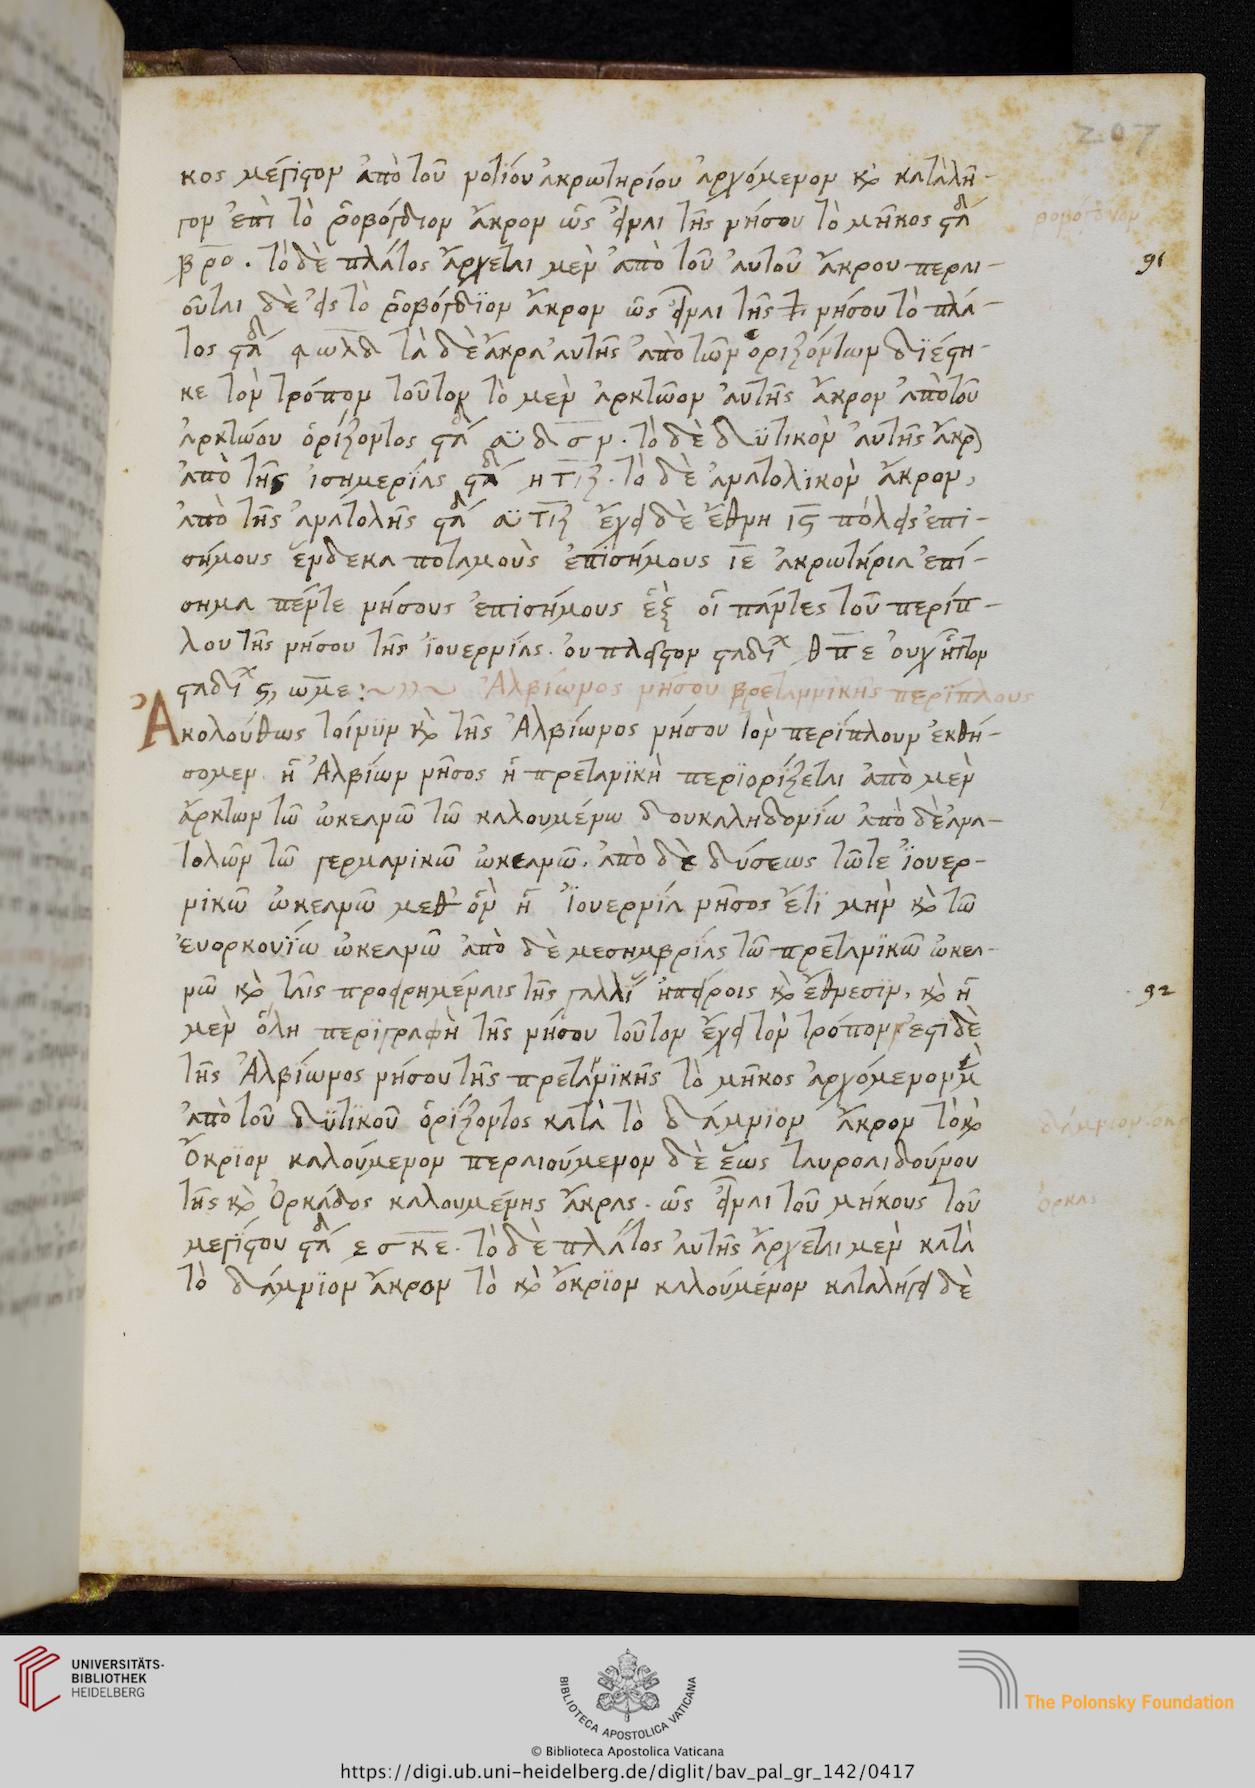 207
κος μέγιστον ἀπὸ τοῦ νοτίου ἀκρωτηρίου ἀρχόμενον καὶ καταλῆ-
γον ἐπὶ τὸ ῥοβόγδιον ἄκρον ὡς εἶναι τῆς νήσου τὸ μῆκος σταδ
βρο. τὸ δὲ πλάτος ἄρχεται μὲν ἀπὸ τοῦ αὐτοῦ ἄκρου περαι-
οῦται δὲ εἰς τὸ ῥοβόγδϊον ἄκρον ὡς εἶναι τῆς νήσου τὸ πλά-
τος σταδ αωλδ τὰ δὲ ἄκρα αὐτῆς ἀπὸ τῶν ὁριζόντων διέστη-
κε τὸν τρόπον τοῦτον τὸ μὲν ἀρκτῶον αὐτῆς ἄκρον ἀπὸ τοῦ
ἀρκτώου ὁρίζοντος σταδ αϋ δσν. τὸ δὲ δυτικὸν αὐτῆς ἄκρ
ἀπὸ τῆς ἰσημερίας σταδ ητιζ. τὸ δὲ ἀνατολικὸν ἄκρον,
ἀπὸ τῆς ἀνατολῆς σταδ αϋ τιζ ἔχει δὲ ἔθνη ιϛ πόλεις ἐπι-
σήμους ἕνδεκα ποταμοὺς ἐπισήμους ιε ἀκρωτήρια ἐπί-
σημα πέντε νήσους ἐπισήμους ἓξ οἱ πάντες τοῦ περίπ-
λου τῆς νήσου τῆς ἰουερνίας. οὐ πλεῖστον σταδι θπε οὐχ ἧττον
σταδι ϛ, ωμε: Ἀλβίωνος νήσου βρεταννικῆς περίπλους
Ἀκολούθως τοίνυν καὶ τῆς Ἀλβίωνος νήσου τὸν περίπλουν ἐκθή-
σομεν ἡ Ἀλβίων νῆσος ἡ πρετανϊκὴ περιορίζεται ἀπὸ μὲν
ἄρκτων τῶ ὠκεανῶ τῶ καλουμένω δουκαληδονίω ἀπὸ δὲ ἀνα-
τολῶν τῶ γερμανικῶ ὠκεανῶ. ἀπὸ δὲ δύσεως τῶ τε ἰουερ-
νικῶ ὠκεανῶ μεθ᾽ ὃν ἡ ἰουερνία νῆσος ἔτι μὴν καὶ τῶ
ἐυορκονϊίω ὠκεανῶ ἀπὸ δὲ μεσημβρίας τῶ πρετανικῶ ὠκεα-
νῶ καὶ ταῖς προειρημέναις τῆς γαλλι ἠπείροις καὶ ἔθνεσιν. καὶ ἡ
μὲν ὅλη περιγραφὴ τῆς νήσου τοῦτον ἔχει τὸν τρόπον ἐστὶ δὲ
τῆς Ἀλβίωνος νήσου τῆς πρετανικῆς τὸ μῆκος ἀρχόμενον μ
ἀπὸ τοῦ δυτικοῦ ὁρίζοντος κατὰ τὸ δάμνιον ἄκρον τὸ καὶ
ὄκριον καλούμενον περαιούμενον δὲ ἕως ταυροαιδούνου
τῆς καὶ Ὀρκάδος καλουμένης ἄκρας. ὡς εἶναι τοῦ μήκους τοῦ
μεγίστου σταδ εσκε. τὸ δὲ πλάτος αὐτῆς ἄρχεται μὲν κατὰ
τὸ δάμνιον ἄκρον τὸ καὶ ὄκριον καλούμενον καταλήγει δὲ
ροβόγδιον
91
92
δάμνιον ακρ
ὀρκας
UNIVERSITÄTS-
BIBLIOTHEK
HEIDELBERG
BIBLIOTECA APOSTOLICA VATICANA
© Biblioteca Apostolica Vaticana
The Polonsky Foundation
https://digi.ub.uni-heidelberg.de/diglit/bav_pal_gr_142/0417